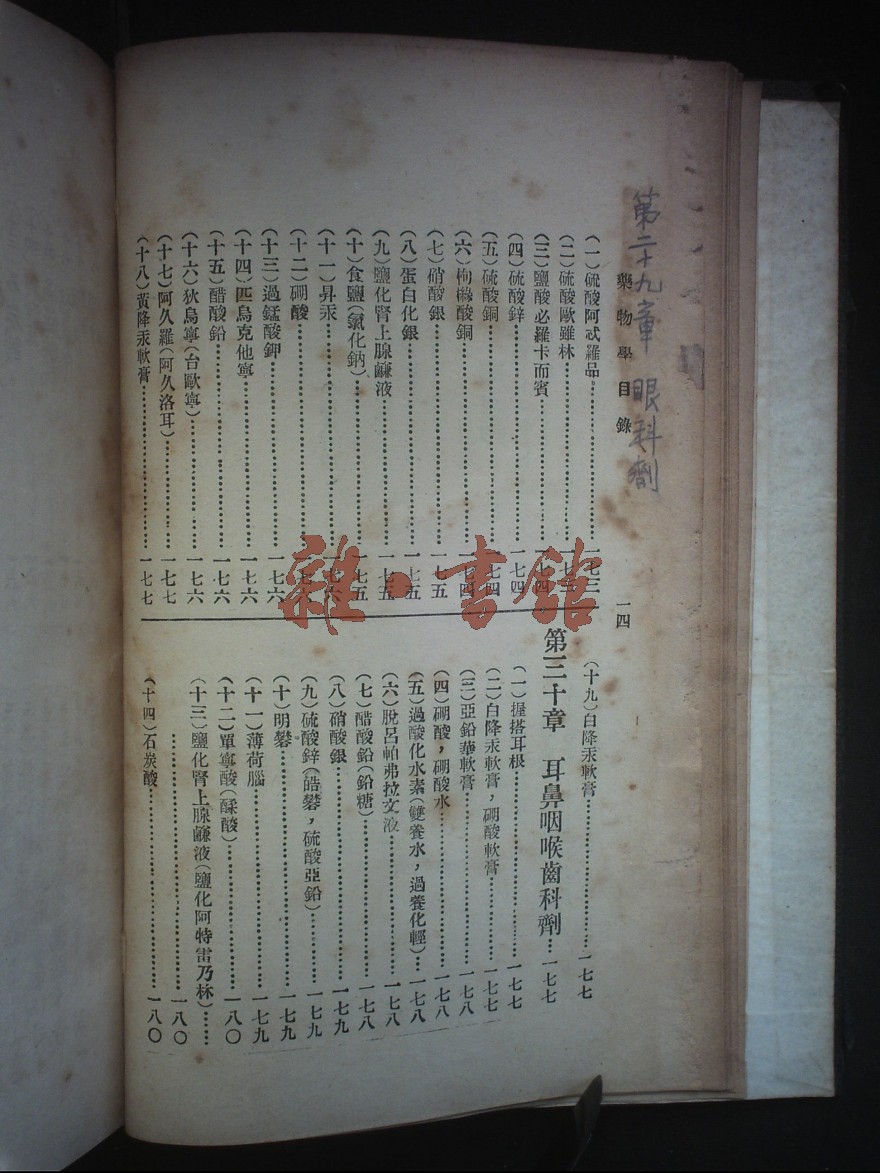 第二十九章 眼科劑
藥物學目錄 一四
(一)硫酸阿忒羅品……一七三
(二)硫酸歐雖林……一七三
(三)鹽酸必羅卡而賓……一七四
(四)硫酸鋅……一七四
(五)硫酸銅……一七四
(六)枸櫞酸銅……一七四
(七)硝酸銀……一七五
(八)蛋白化銀……一七五
(九)鹽化腎上腺鹹液……一七五
(十)食鹽(氯化鈉)……一七五
(十一)昇汞……一七六
(十二)硼酸……一七六
(十三)過錳酸鉀……一七六
(十四)匹烏克他寧……一七六
(十五)醋酸鉛……一七六
(十六)狄烏寧(台歐寧)……一七六
(十七)阿久羅(阿久洛耳)……一七七
(十八)黃降汞軟膏……一七七
(十九)白降汞軟膏……一七七
第三十章 耳鼻咽喉齒科劑…一七七
(一)握搭耳根……一七七
(二)白降汞軟膏,硼酸軟膏……一七七
(三)亞鉛華軟膏……一七八
(四)硼酸,硼酸水……一七八
(五)過酸化水素(雙養水,過養化輕)…一七八
(六)脫呂帕弗拉文液……一七八
(七)醋酸鉛(鉛糖)……一七八
(八)硝酸銀……一七九
(九)硫酸鋅(皓礬,硫酸亞鉛)……一七九
(十)明礬……一七九
(十一)薄荷腦……一七九
(十二)單寧酸(鞣酸)……一八〇
(十三)鹽化腎上腺鹹液(鹽化阿特雷乃林)……
……一八〇
(十四)石炭酸……一八〇
雜·書館